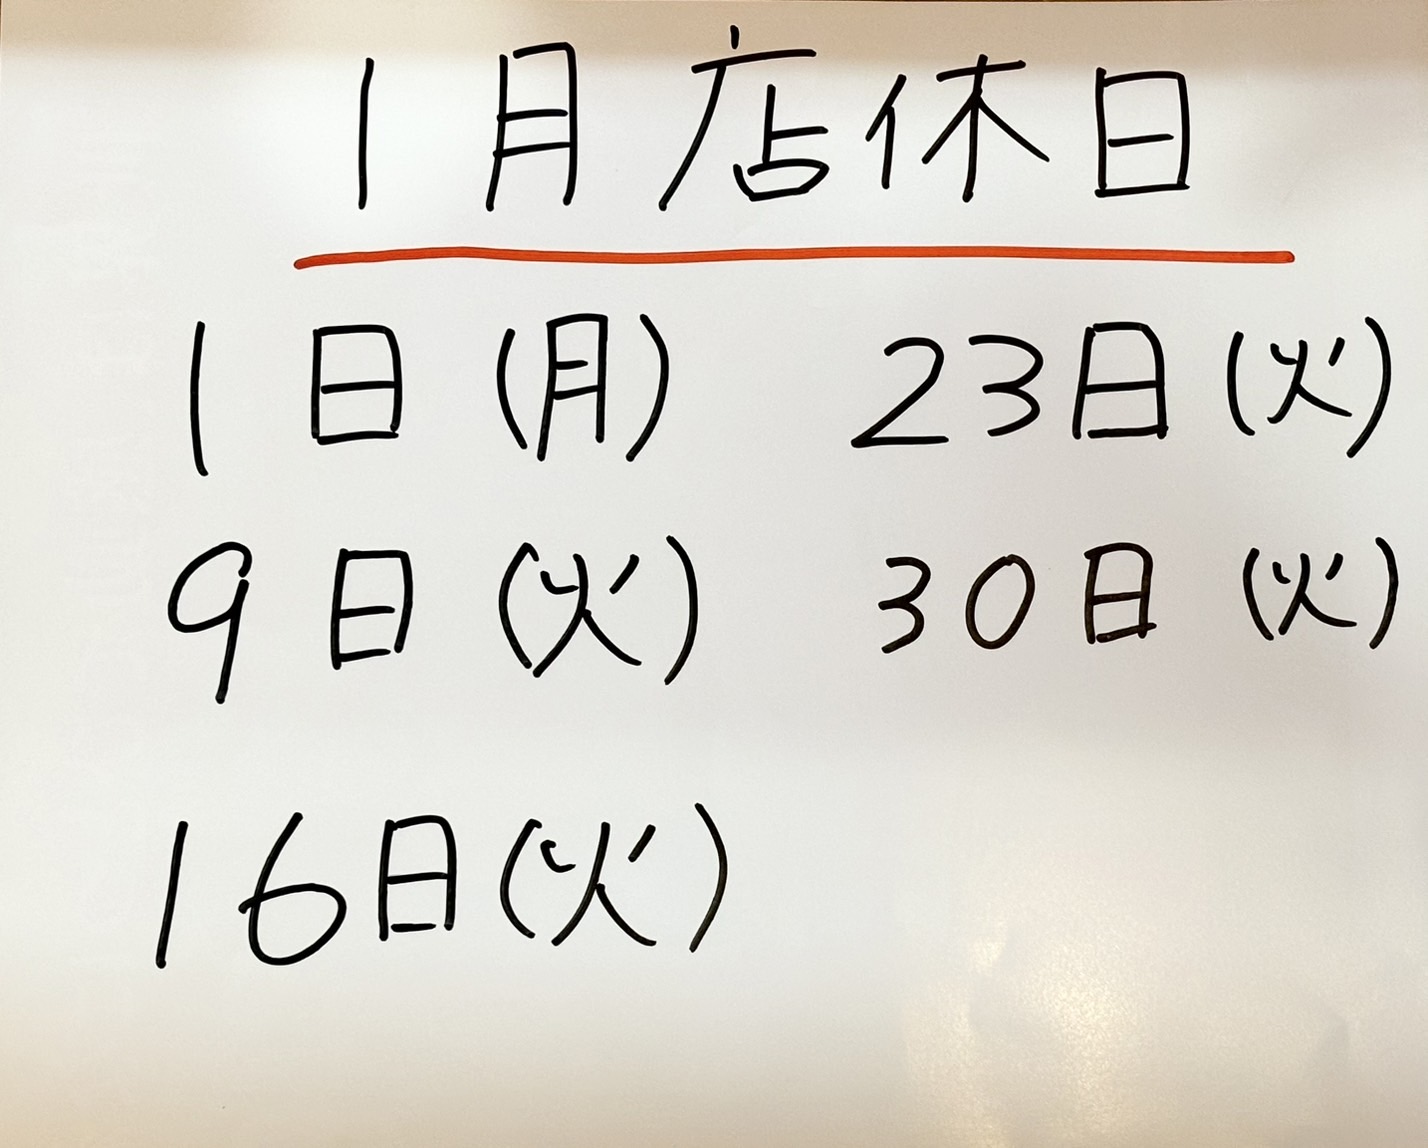 1月店休日
1日(月)
9日(火)
16日(火)
23日(火)
30日(火)